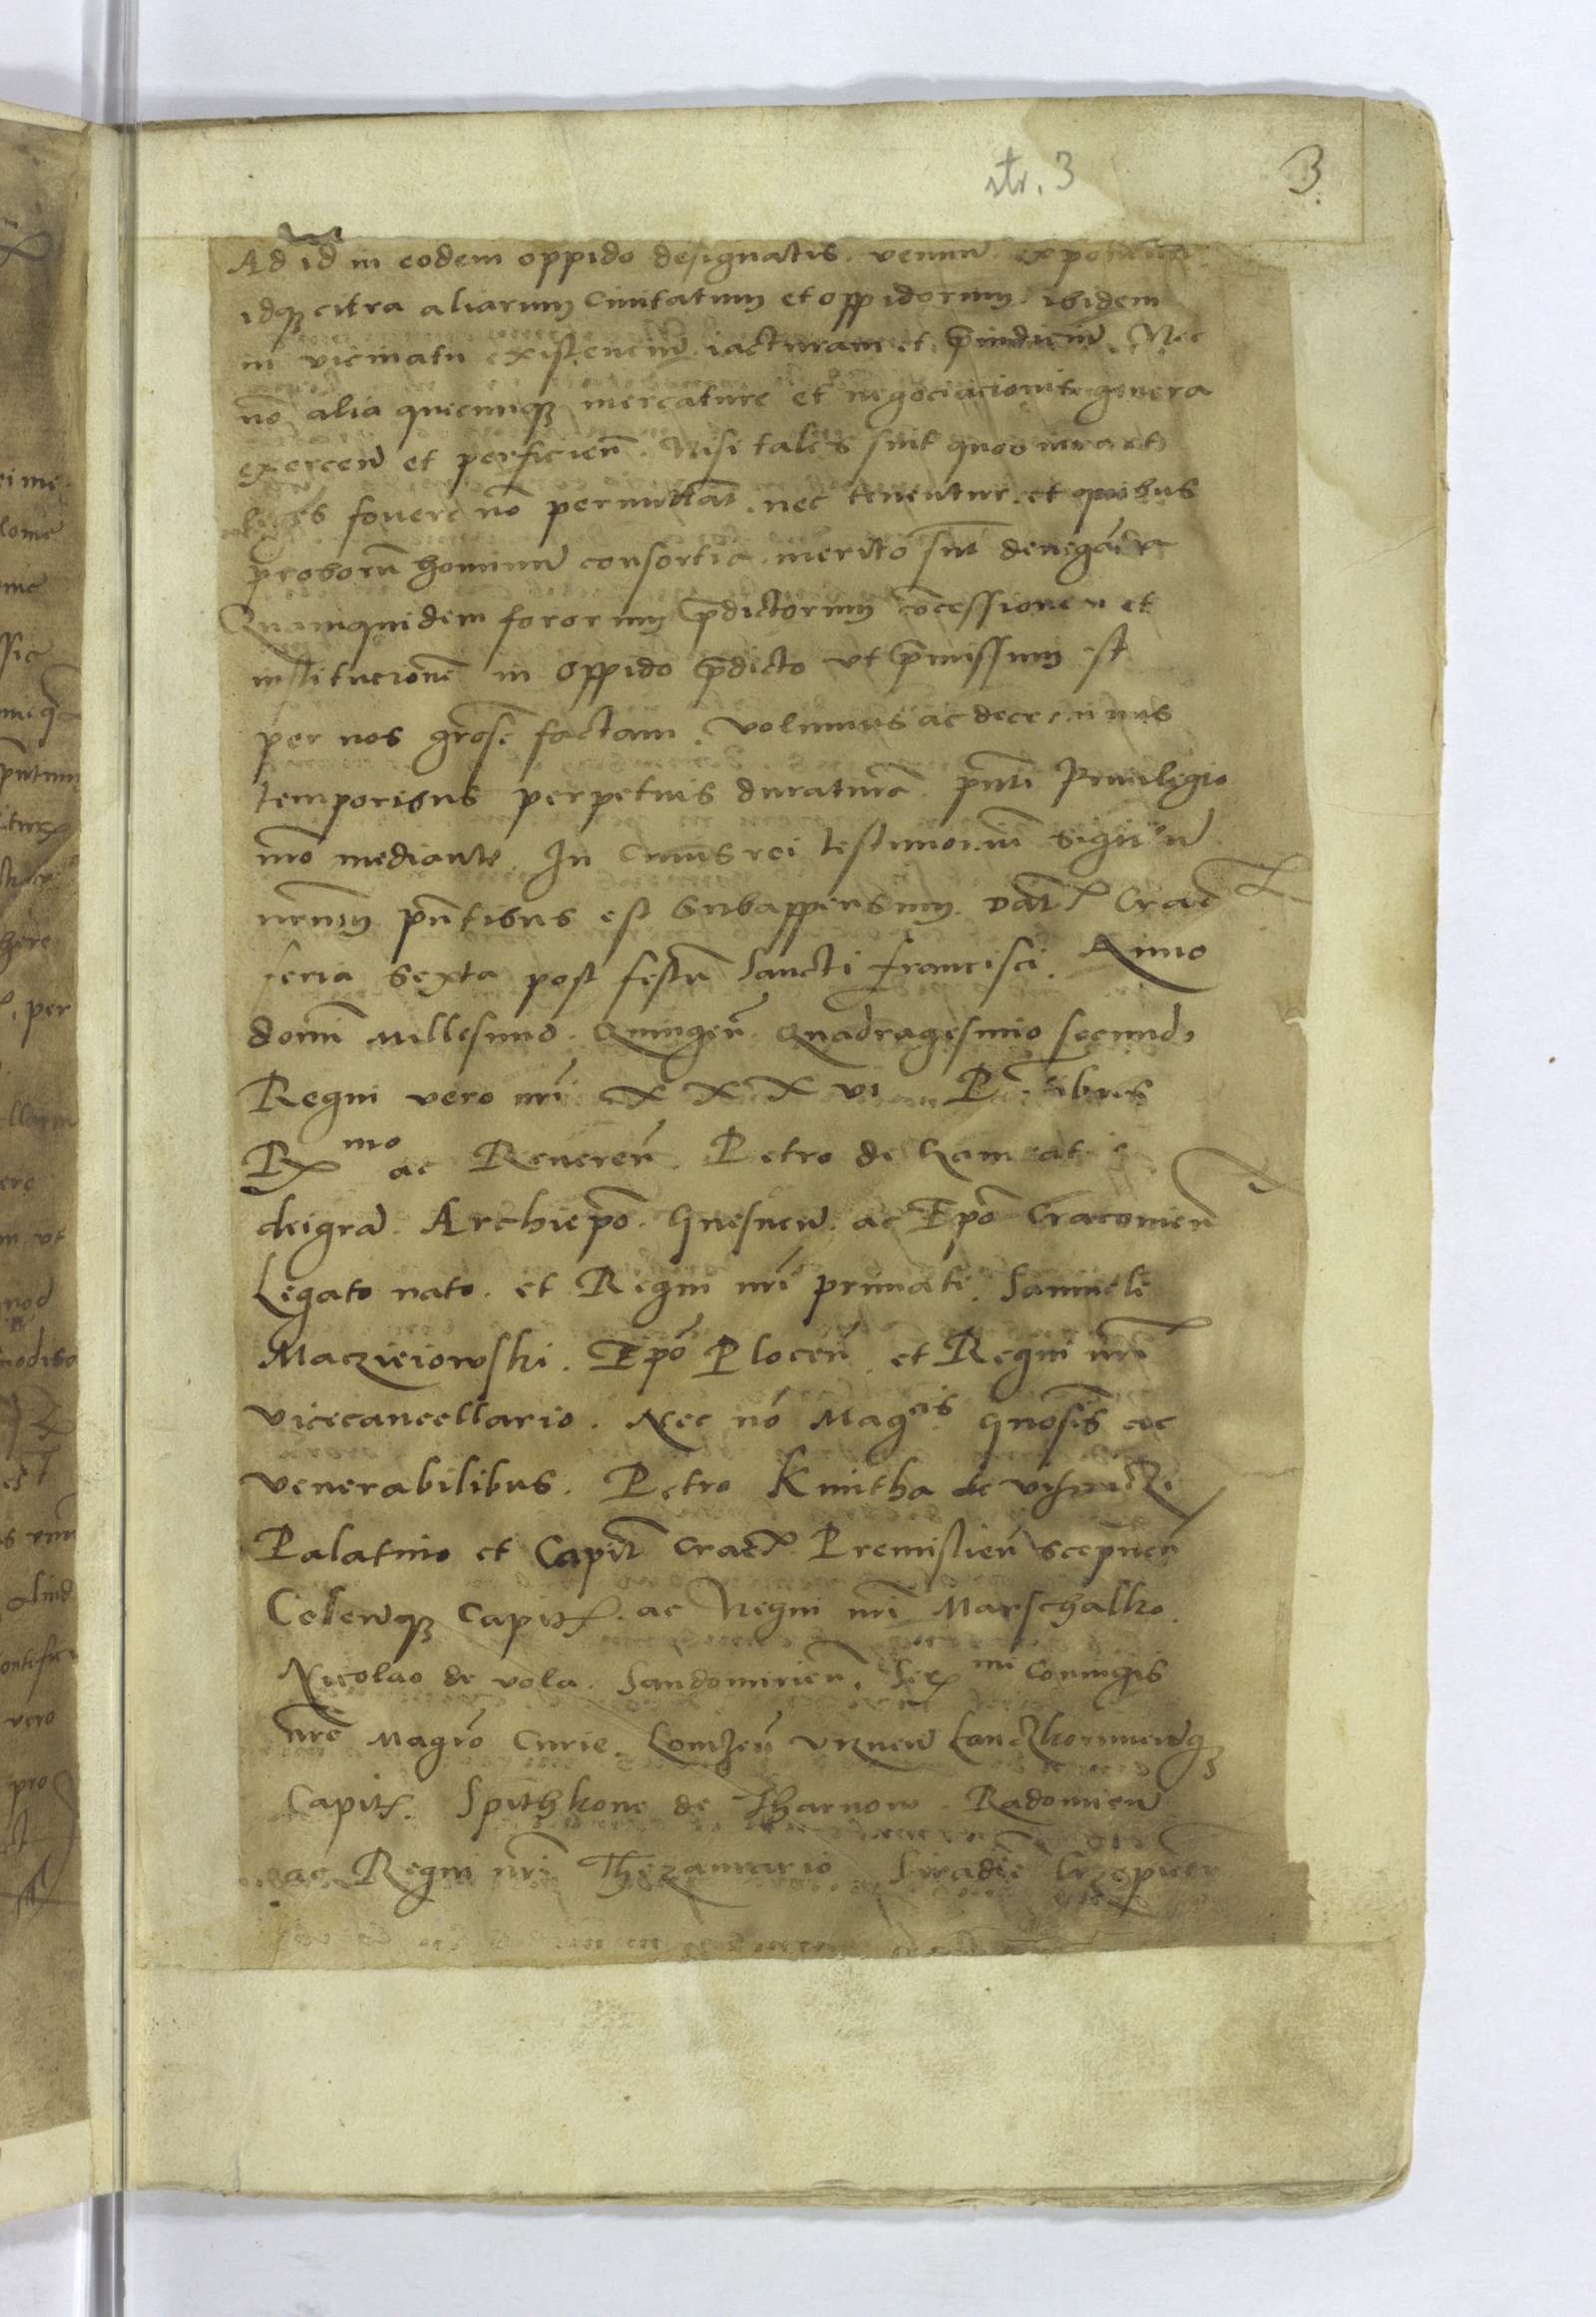 str. 3
3
Ad id in eodem oppido designatis. venum exponen
idqꝫ citra aliarum Ciuitatum et oppidorum ibidem
in vicinatu existenciũ iacturam et p̃iudiciũ Nec
nõ alia quecunqꝫ mercature et negociacionis genera
exercen̄ et perficien̄. Nisi tales sint quos iura et
fouere nõ permittãt. nec tenentur. et quibus
proborũ hominũ consortia merito sũt denegãda
Quamquidem fororum p̃dictorum cõcessionem et
institucionẽ in oppido p̃dicto vt p̃missum est
per nos grõse factam. volumus ac decernimus
temporibus perpetuis duraturã. pñti Priuilegio
nr̃o mediante. In Cuius rei testimoniũ sigillũ
nrum pñtibus est subappensum. Dat̃ Crac̃
feria sexta post festũ sancti francisci. Anno
domĩ Millesimo. Quingen̄ Quadragesimo secundo
Regni vero nr̃i XXXVI P̃ntibus
Rx mo ac Reueren̄. Petro de Gamrat
dei gra. Archiepõ. Gnesnen̄. ac Epõ Cracouien̄
Legato nato. et Regni nr̃i primati. Samuele
Maczieiowski. Epõ Plocen̄ et Regni nr̃i
vicecancellario. Nec nõ Mag cis Gñosis ac
venerabilibus. Petro Kmitha de Visnicze
Palatino et Capit̃ Crac̃. Premislien̄ scepuen̄
Colenqꝫ Capit̃. ac Regni nr̃i Marschalko.
Nicolao de vola. Sandomirien̄. Ser mi Coniugis
nr̃e Magr̃o Curie. Lomzen̄ vznen̄ Lanczkorunenqꝫ
Capit̃. Spithkone de Tharnow. Radomien̄
ac Regni nr̃i Thezaurario Siradiẽ Crzepicen̄